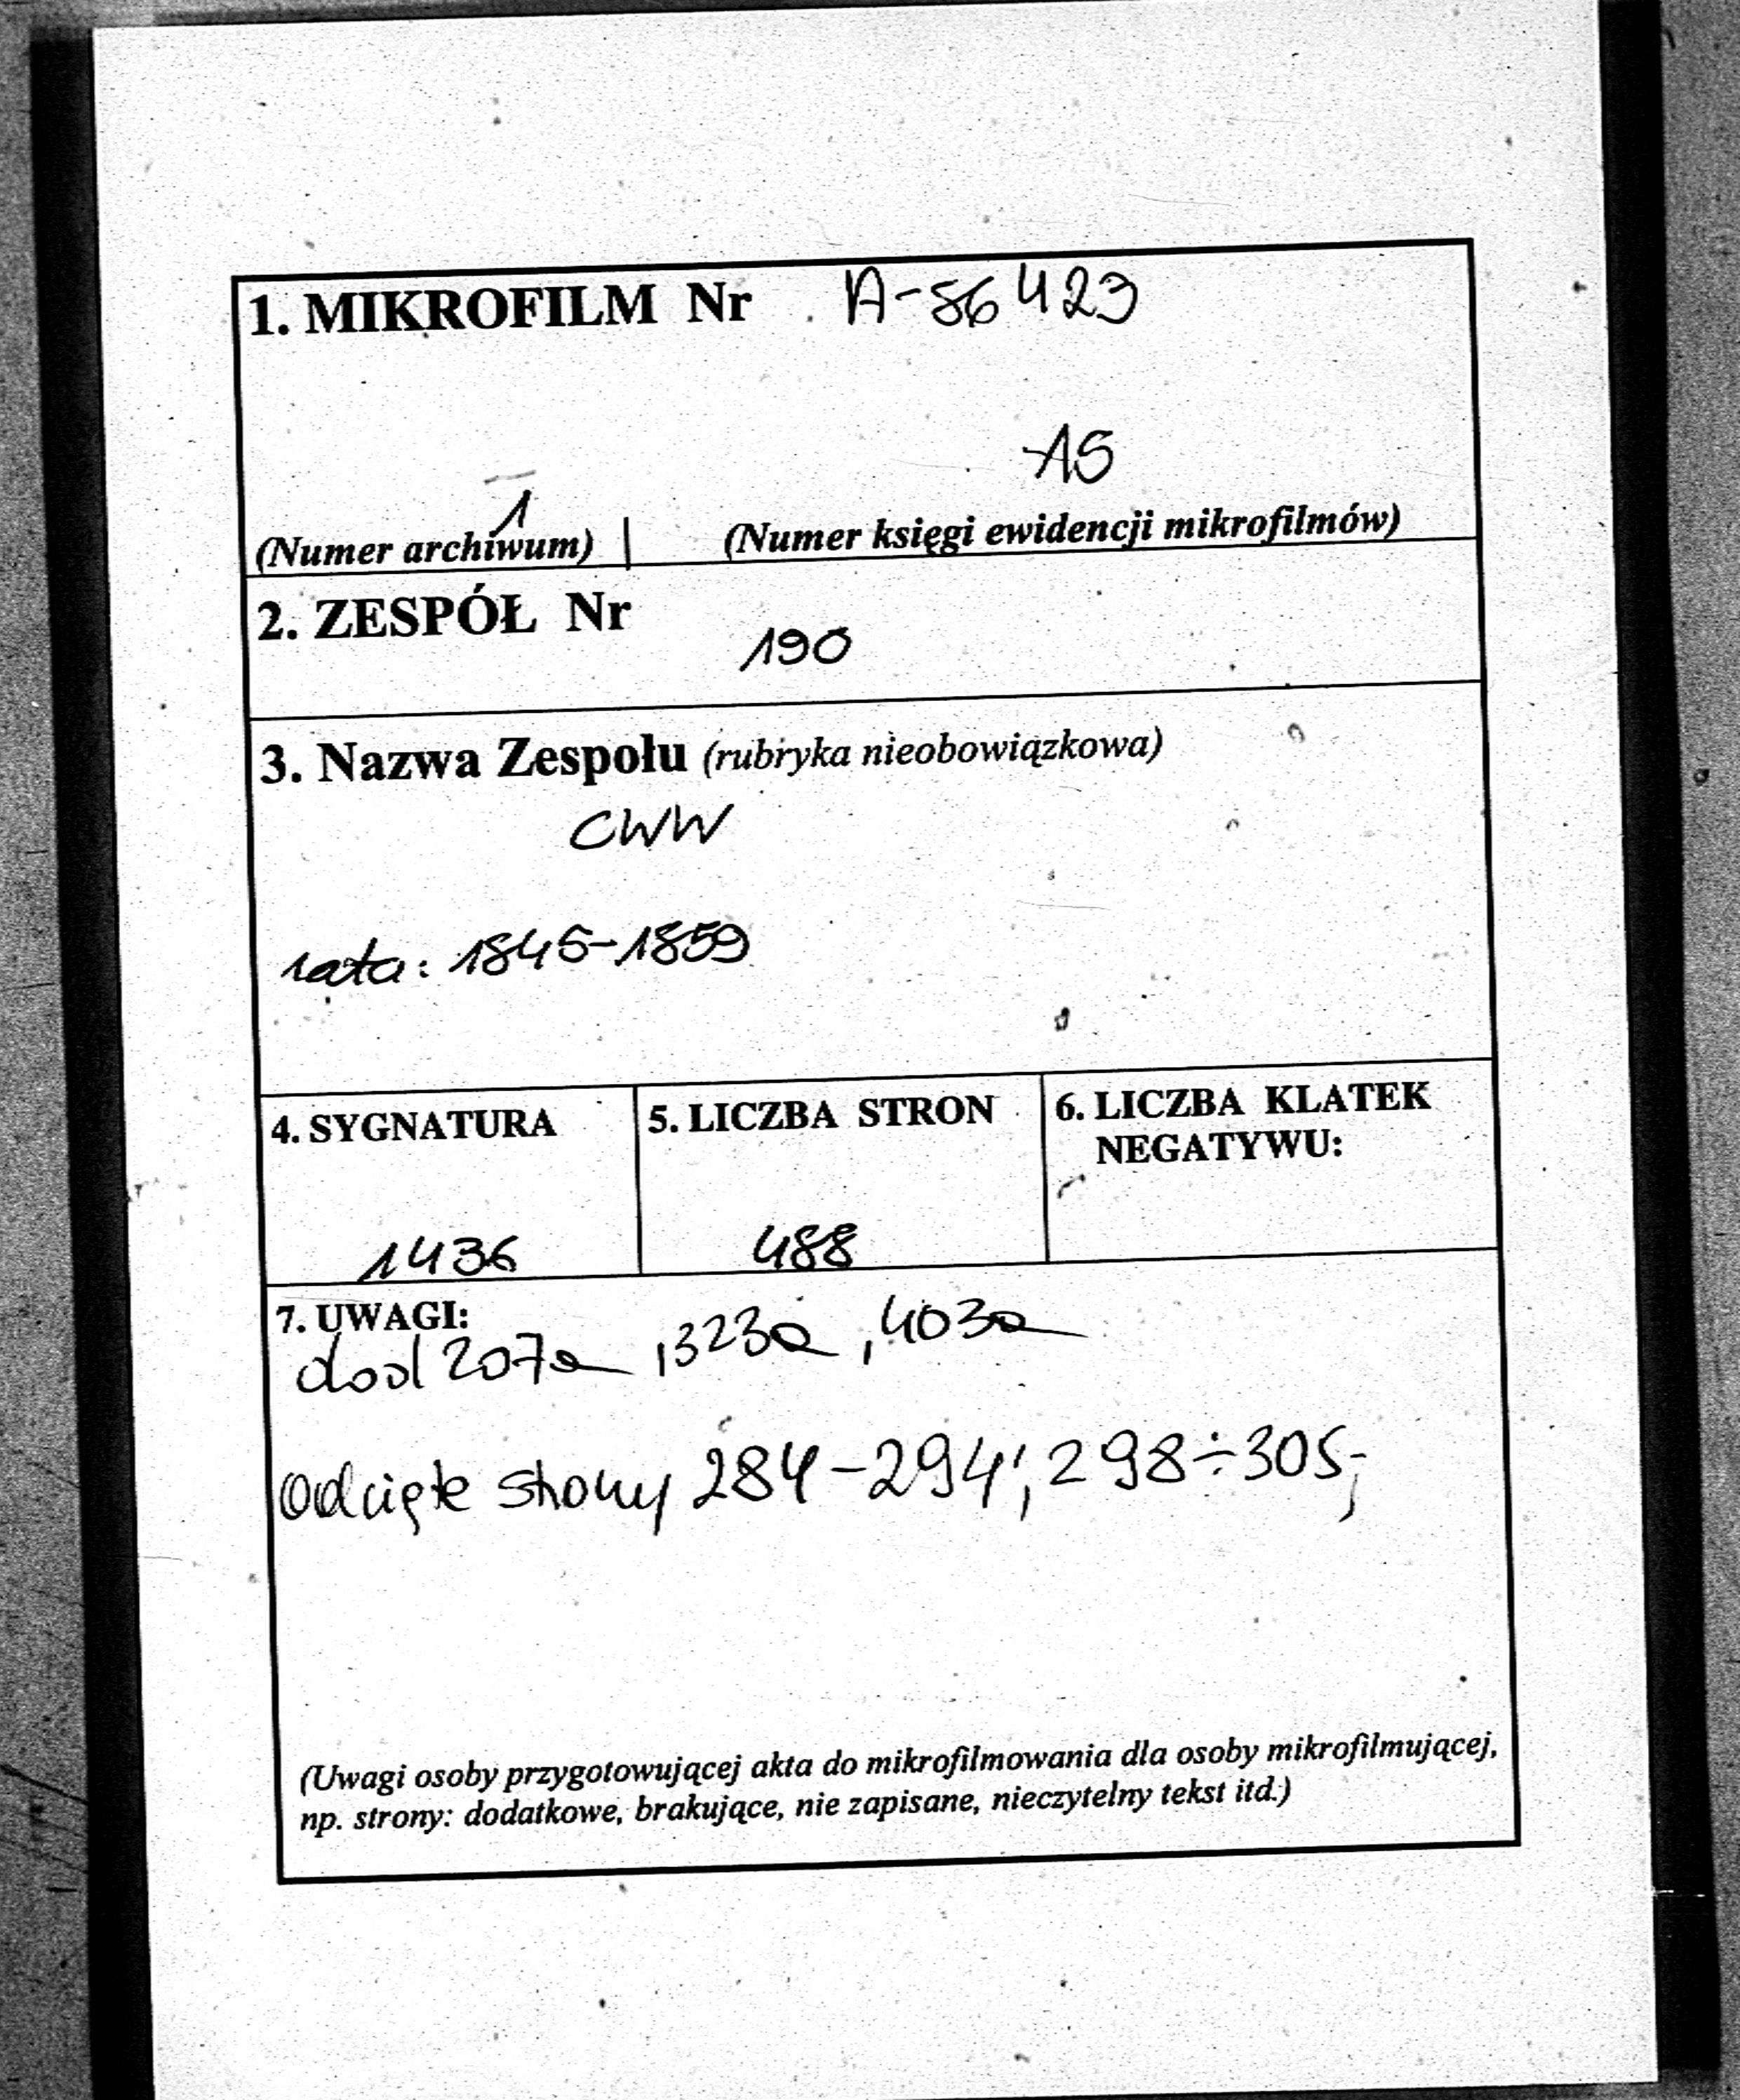 1. MIKROFILM Nr A-86423
15
1
(Numer archiwum) | (Numer księgi ewidencji mikrofilmów)
2. ZESPÓŁ Nr
190
3. Nazwa Zespołu (rubryka nieobowiązkowa)
CWW
lata: 1845-1859
4. SYGNATURA 5. LICZBA STRON 6. LICZBA KLATEK
NEGATYWU:
1436 488
7. UWAGI:
dod 207a, 323a, 403a
Odcięte strony 284-294; 298÷305;
(Uwagi osoby przygotowującej akta do mikrofilmowania dla osoby mikrofilmującej,
np. strony: dodatkowe, brakujące, nie zapisane, nieczytelny tekst itd.)